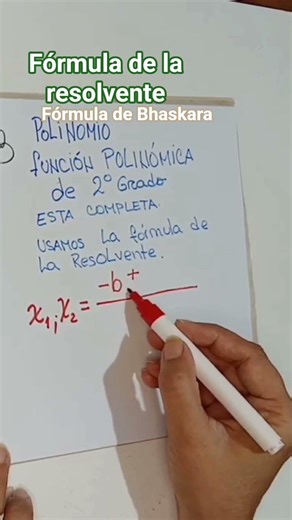 Fórmula de la
resolvente
Fórmula de Bhaskara
POLINOMIO
función POLINÓMICA
de 2º Grado
ESTA COMPLETA.
USAMOS La fórmula de
La Resolvente.
-b +
x₁; x₂ =